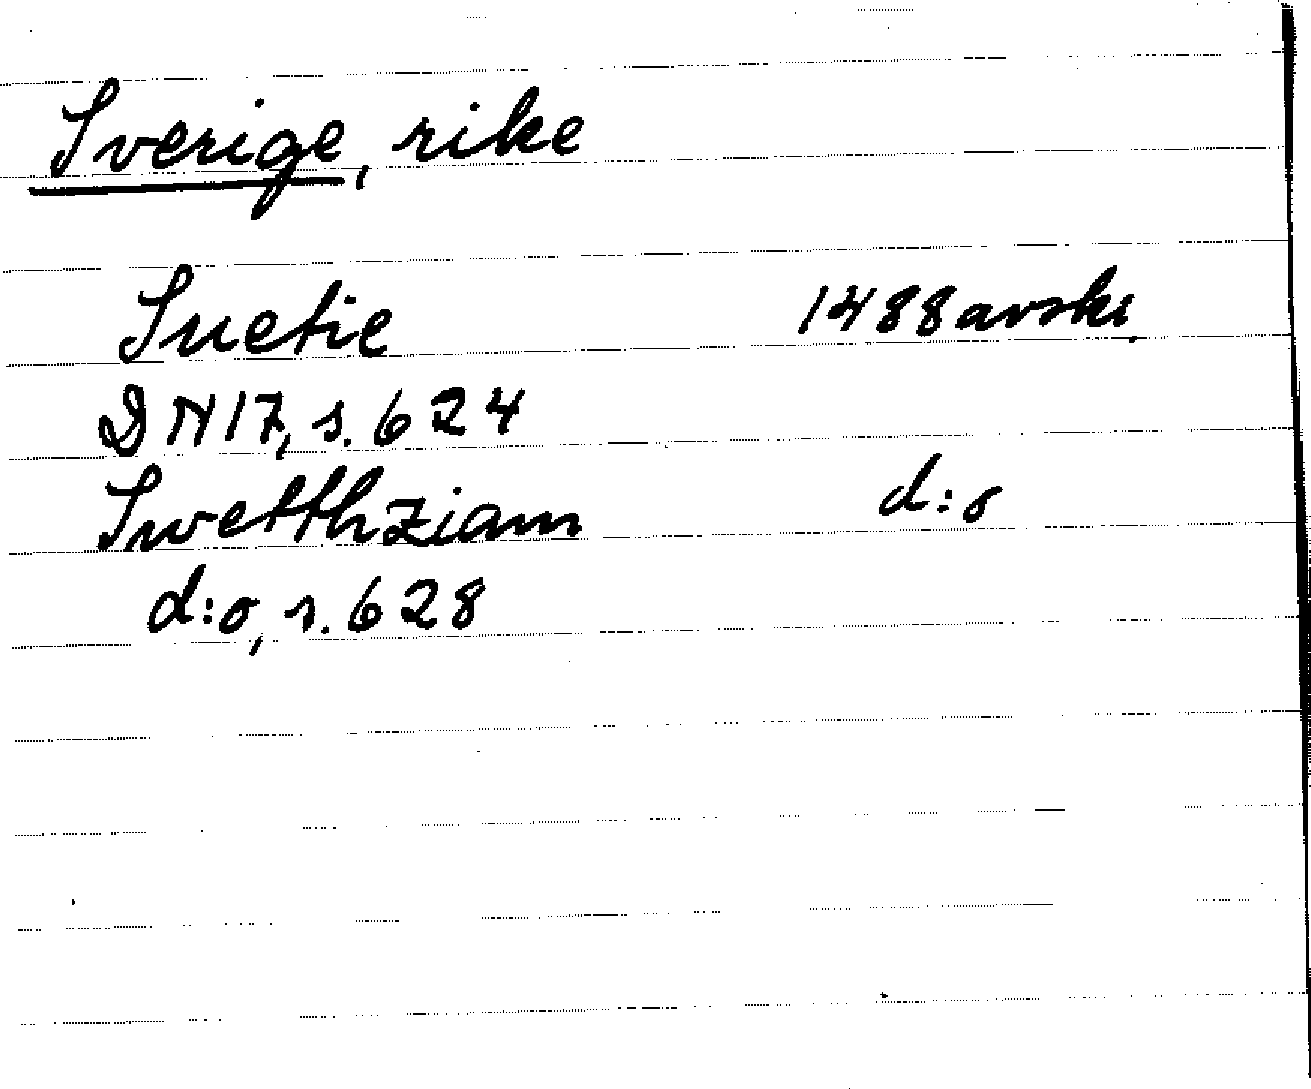 Sverige, rike
Suetie 1488 avskr.
DN 17, s. 624
Swetthziam d:o
d:o, s. 628